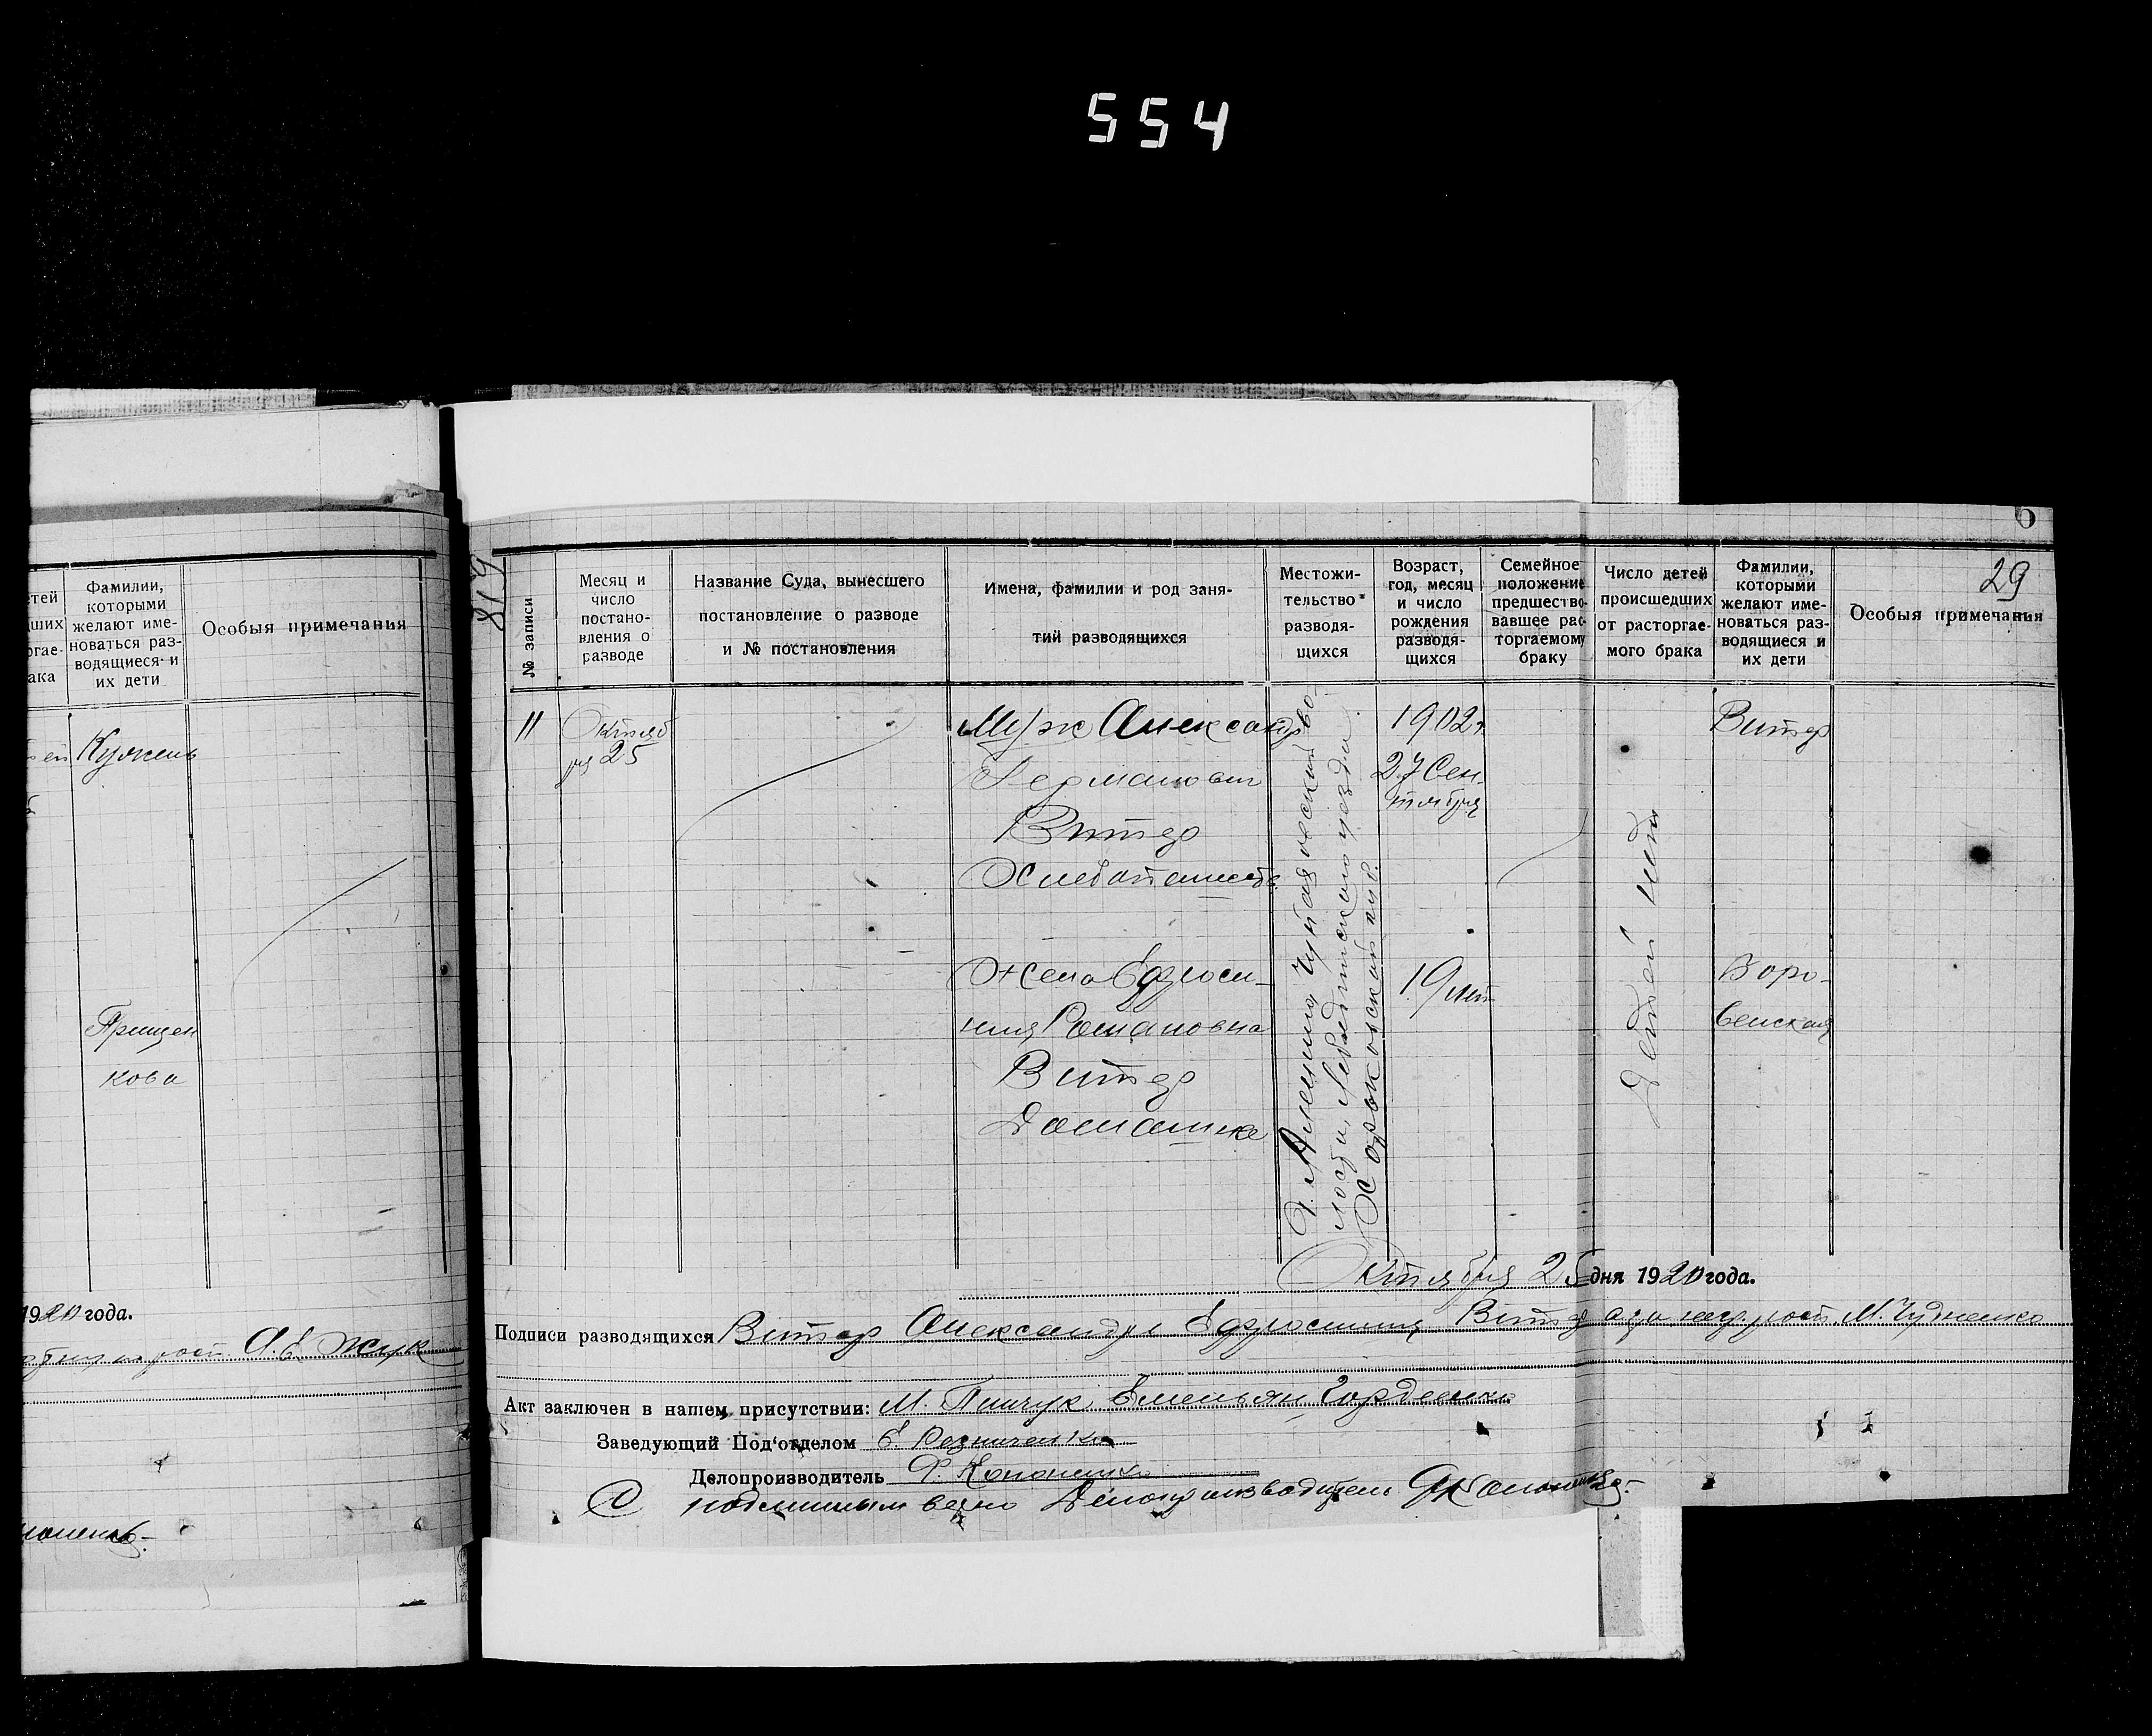 554
етей
Фамилии,
которыми
желают име-
новаться раз-
водящиеся и
их дети
Особыя примечания
Кужель
Грицен
кова
1920 года.
А. Е. Жук
6
29
819
№ записи
Месяц и
число
постано-
вления о
разводе
Название Суда, вынесшего
постановление о разводе
и № постановления
Имена, фамилии и род заня-
тий разводящихся
Местожи-
тельство
разводя-
щихся
Возраст,
год, месяц
и число
рождения
разводя-
щихся
Семейное
положение
предшество-
вавшее рас-
торгаемому
браку
Число детей
происшедших
от расторгае-
мого брака
Фамилии,
которыми
желают име-
новаться раз-
водящиеся и
их дети
Особыя примечания
11
Октяб
ря 25
Муж Александр
Германович
Витер
Хлебопашество
Жена Ефроси-
ния Романовна
Витер
Домашне
лости, Лебединского уезда
Харьковской губ.
1902 г.
27 Сен
тября
19 лет
Детей нет
Витер
Воро-
Октября 25 дня 1920 года.
Подписи разводящихся Витер Александр Ефросиния Витер а за негр. росп. М. Чудненко
Акт заключен в нашем присутствии: М. Пинчук, Емельян Гордеенко
Заведующий Под'отделом Е. Резниченко
Делопроизводитель Ф. Кононенко
С подлинным верно Делопроизводитель ФКононенко